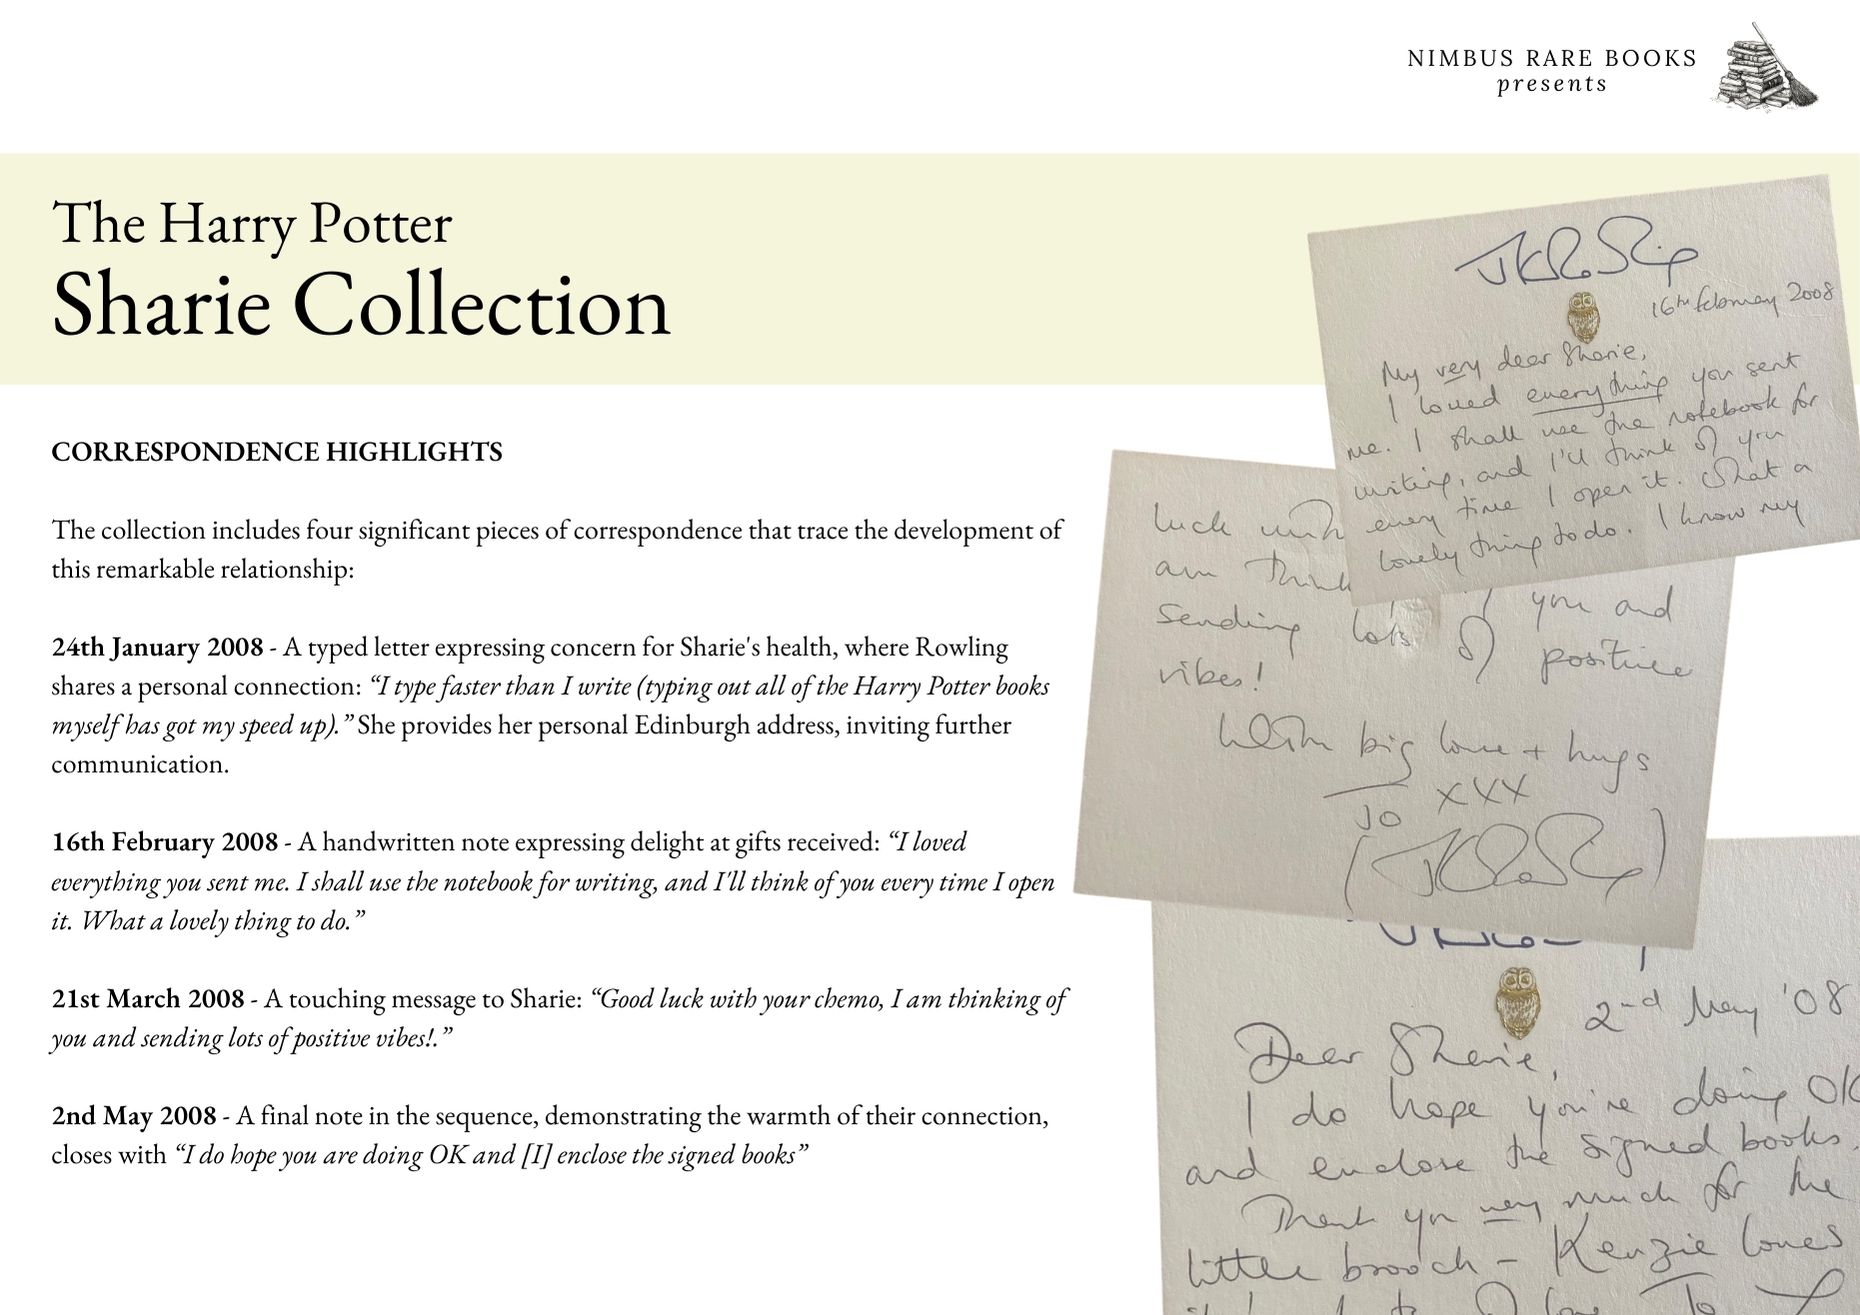 NIMBUS RARE BOOKS
presents
The Harry Potter
Sharie Collection
CORRESPONDENCE HIGHLIGHTS
The collection includes four significant pieces of correspondence that trace the development of
this remarkable relationship:
24th January 2008 - A typed letter expressing concern for Sharie's health, where Rowling
shares a personal connection: “I type faster than I write (typing out all of the Harry Potter books
myself has got my speed up).” She provides her personal Edinburgh address, inviting further
communication.
16th February 2008 - A handwritten note expressing delight at gifts received: “I loved
everything you sent me. I shall use the notebook for writing, and I'll think of you every time I open
it. What a lovely thing to do.”
21st March 2008 - A touching message to Sharie: “Good luck with your chemo, I am thinking of
you and sending lots of positive vibes!.”
2nd May 2008 - A final note in the sequence, demonstrating the warmth of their connection,
closes with “I do hope you are doing OK and [I] enclose the signed books”
JKRowling
16th February 2008
My very dear Sharie,
I loved everything you sent
me. I shall use the notebook for
writing, and I'll think of you
every time I open it. What a
lovely thing to do. I know my
luck with
am think
sending lots of you and
positive
vibes!
With big love + hugs
Jo xxx
(JKRowling)
2nd May '08
Dear Sharie,
I do hope you're doing OK
and enclose the signed books.
Thank you very much for the
little brooch – Kenzie loves